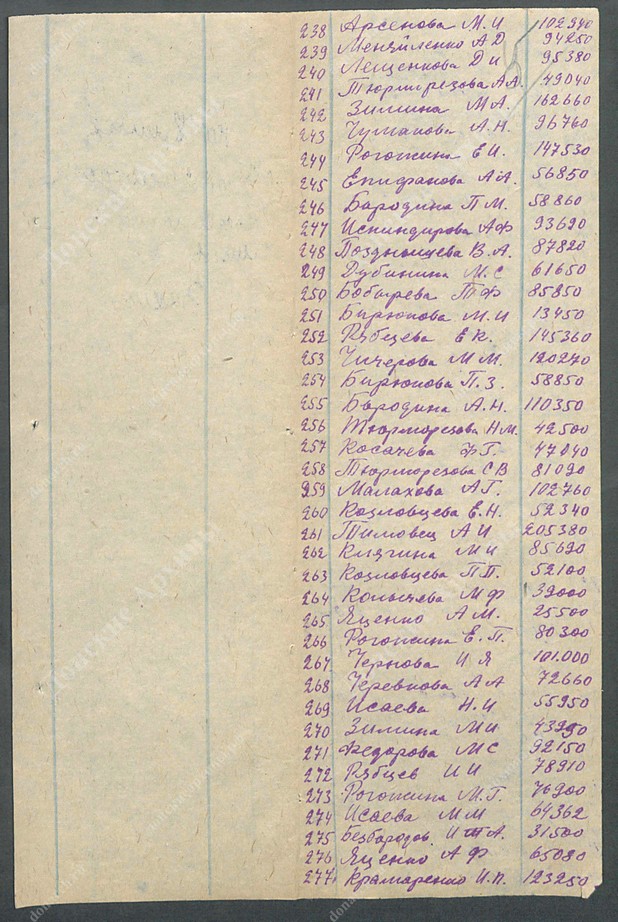 238 Арсенова М.И 102940
239 Меняйленко А Д 94250
240 Лещенкова Д И 95380
241 Тюрморезова А А. 49040
242 Зимина М А. 162660
243 Чумакова А.Н. 96760
244 Рогожина Е И. 147530
245 Епифанова А А. 56850
246 Бародина П М. 58860
247 Испиндирова А Ф 93690
248 Позднышева В. А. 87820
249 Дубинина М. С 61650
250 Бобырева Т Ф 85850
251 Бирюкова М. И 13450
252 Рябцева Е К. 145360
253 Чичерова М М. 120240
254 Бирюкова П. З. 58850
255 Бородина А.Н. 110350
256 Тюрморезова Н М. 42500
257 Косачева Ф Г. 47040
258 Тюрморезова С В 81090
259 Малахова А Г. 102760
260 Козловцева Е.Н. 52340
261 Тимовец А И 205380
262 Княгина М И 85690
263 Козловцева П П. 52100
264 Колычева М Ф 39000
265 Яценко А М. 25500
266 Рогожина Е. П. 80300
267 Чернова И Я 101.000
268 Черевкова А А 72660
269 Исаева Н. И 55950
270 Зимина М И
271 Федорова М С 92150
272 Рябцев И И 78910
273 Рогожина М. Г. 76900
274 Исаева М М 64362
275 Безбородов 31500
276 Яценко А Ф 65090
277 Крамаренко И. П. 123250